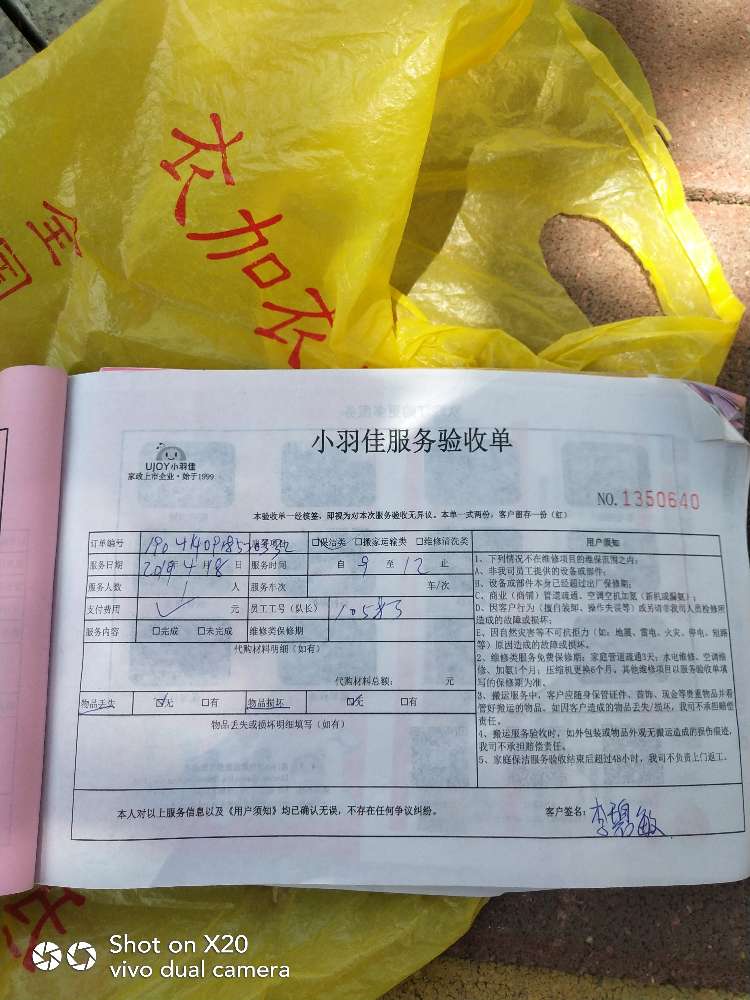 衣加衣
全国
小羽佳服务验收单
UJOY小羽佳
家政上市企业·始于1999
NO.1350640
本验收单一经核签，即视为对本次服务验收无异议。本单一式两份，客户留存一份（红）
订单编号 服务项目 □保洁类 □搬家运输类 □维修清洗类
服务日期 2019年4月18日 服务时间 自 9 至 12 止
服务人数 1 人 服务车次 车/次
支付费用 元 员工工号（队长） 10583
服务内容 □完成 □未完成 维修类保修期
代购材料明细（如有）
代购材料总额： 元
物品丢失 ☑无 □有 物品损坏 ☑无 □有
物品丢失或损坏明细填写（如有）
用户须知
1、下列情况不在维修项目的维保范围之内：
A、非我司员工提供的设备或部件；
B、设备或部件本身已经超过出厂保修期；
C、商业（商铺）管道疏通、空调空机加氟（新机或漏氟）；
D、因客户行为（擅自装卸、操作失误等）或另请非我司人员检修所
造成的故障或损坏；
E、因自然灾害等不可抗拒力（如：地震、雷电、火灾、停电、短路
等）原因造成的故障或损坏。
2、维修类服务免费保修期：家庭管道疏通3天；水电维修、空调维
修、加氟1个月；压缩机更换6个月。其他维修项目以服务验收单填
写的保修期为准。
3、搬运服务中，客户应随身保管证件、首饰、现金等贵重物品并看
管好搬运的物品。如因客户造成的物品丢失/损坏，我司不承担赔偿
责任。
4、搬运服务验收时，如外包装或物品外观无搬运造成的损伤痕迹，
我司不承担赔偿责任。
5、家庭保洁服务验收结束后超过48小时，我司不负责上门返工。
本人对以上服务信息以及《用户须知》均已确认无误，不存在任何争议纠纷。 客户签名：李碧敏
Shot on X20
vivo dual camera